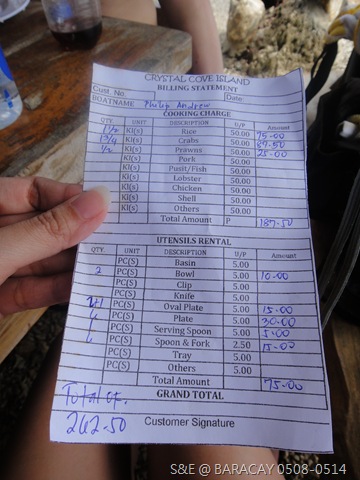 CRYSTAL COVE ISLAND
BILLING STATEMENT
Cust. No. Date:
BOATNAME Philip Andrew
COOKING CHARGE
QTY. UNIT DESCRIPTION U/P Amount
1 1/2 Kl(s) Rice 50.00 75.00
1 3/4 Kl(s) Crabs 50.00 87.50
1/2 Kl(s) Prawns 50.00 25.00
Kl(s) Pork 50.00
Kl(s) Pusit/Fish 50.00
Kl(s) Lobster 50.00
Kl(s) Chicken 50.00
Kl(s) Shell 50.00
Kl(s) Others 50.00
Total Amount P 187.50
UTENSILS RENTAL
QTY. UNIT DESCRIPTION U/P Amount
PC(S) Basin 5.00
2 PC(S) Bowl 5.00 10.00
PC(S) Clip 5.00
PC(S) Knife 5.00
2+1 PC(S) Oval Plate 5.00 15.00
6 PC(S) Plate 5.00 30.00
1 PC(S) Serving Spoon 5.00 5.00
6 PC(S) Spoon & Fork 2.50 15.00
PC(S) Tray 5.00
PC(S) Others 5.00
Total Amount 75.00
GRAND TOTAL
Total of.
262.50
Customer Signature
S&E @ BARACAY 0508-0514